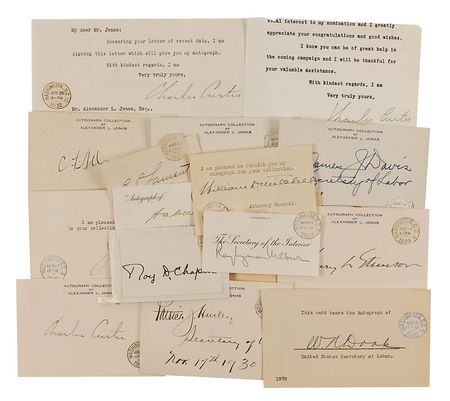 My dear Mr. Jonas:
Answering your letter of recent date, I am
signing this letter which will give you my autograph.
With kindest regards, I am
Very truly yours,
Charles Curtis
Mr. Alexander L. Jonas, Esq.,
interest in my nomination and I greatly
appreciate your congratulations and good wishes.
I know you can be of great help in
the coming campaign and I will be thankful for
your valuable assistance.
With kindest regards, I am
Very truly yours,
Charles Curtis
AUTOGRAPH COLLECTION
OF
ALEXANDER L. JONAS
AUTOGRAPH COLLECTION
OF
ALEXANDER L. JONAS
AUTOGRAPH COLLECTION
OF
ALEXANDER L. JONAS
James J. Davis
Secretary of Labor
Lamont
I am pleased to furnish you my
autograph for your collection.
Attorney General.
Autograph of
I am pleased
to your collection
The Secretary of the Interior
Ray Lyman Wilbur
AUTOGRAPH COLLECTION
OF
ALEXANDER L. JONAS
Henry L. Stimson
Roy D. Chapin
AUTOGRAPH COLLECTION
OF
ALEXANDER L. JONAS
Charles Curtis
Patrick J. Hurley
Secretary of
Nov. 19th 1930
This card bears the Autograph of
W N Doak
United States Secretary of Labor.